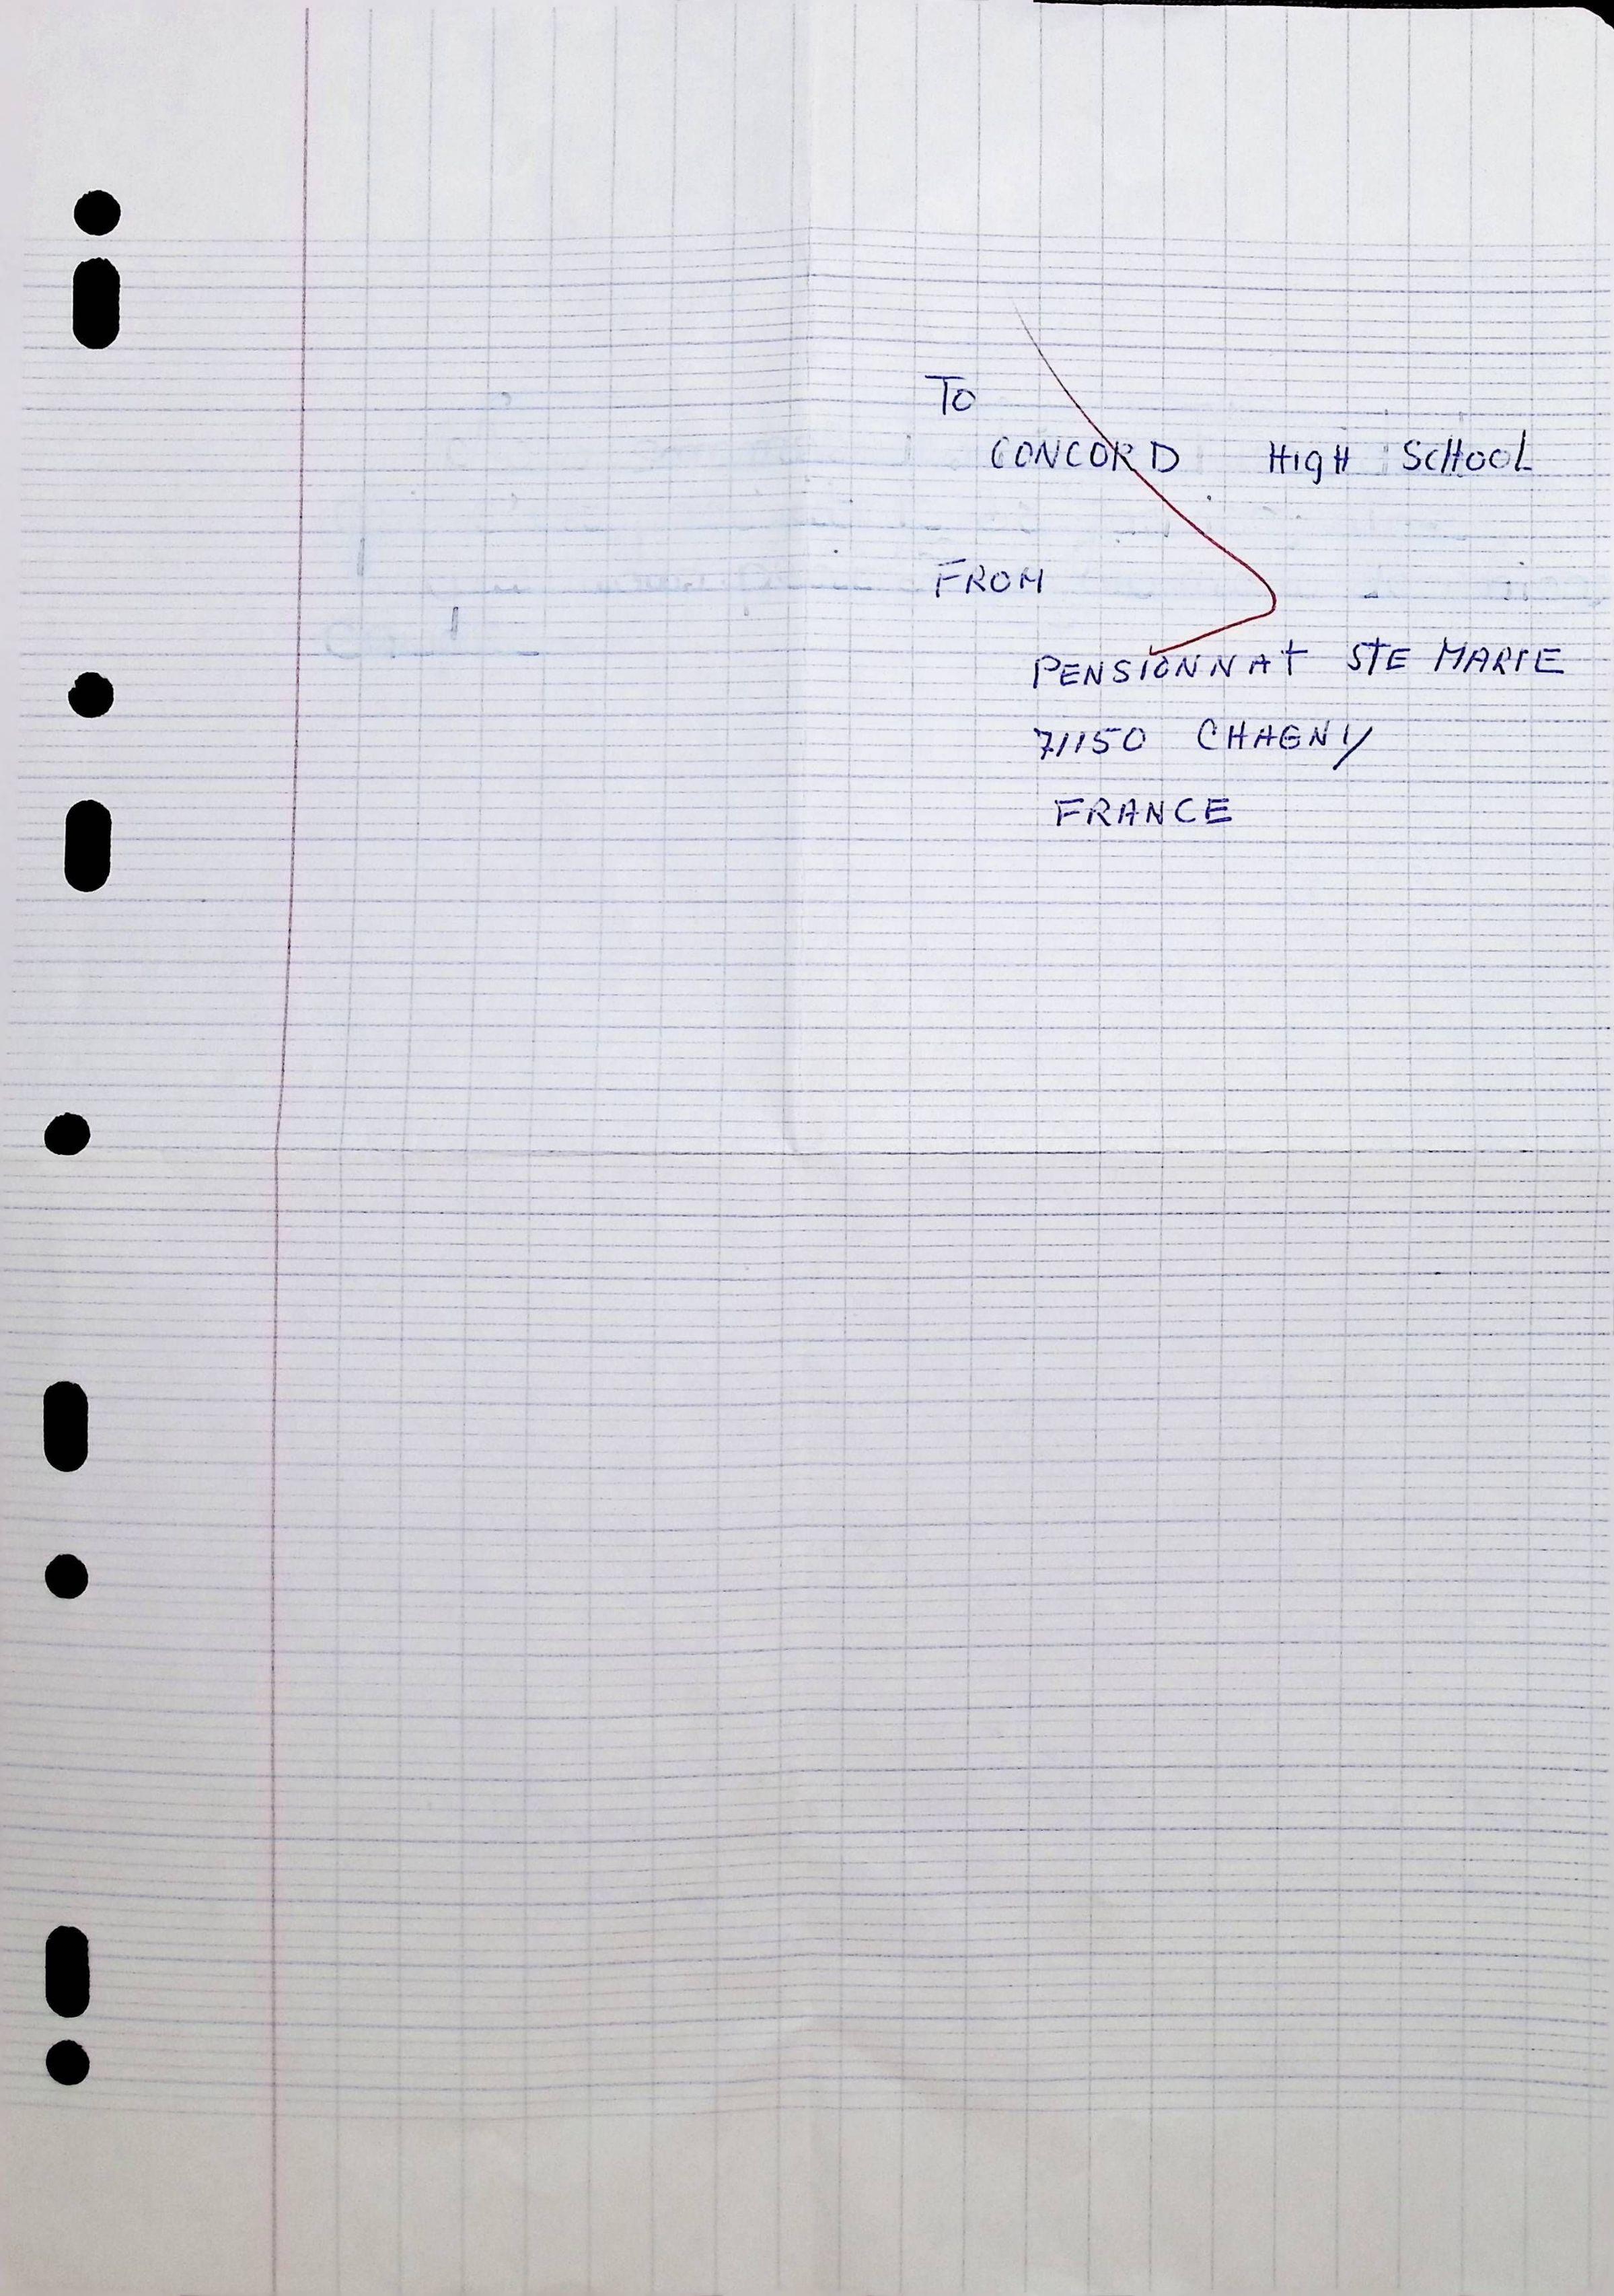 To
CONCORD HigH SCHOOL
FROM
PENSIONNAT STE MARIE
71150 CHAGNY
FRANCE